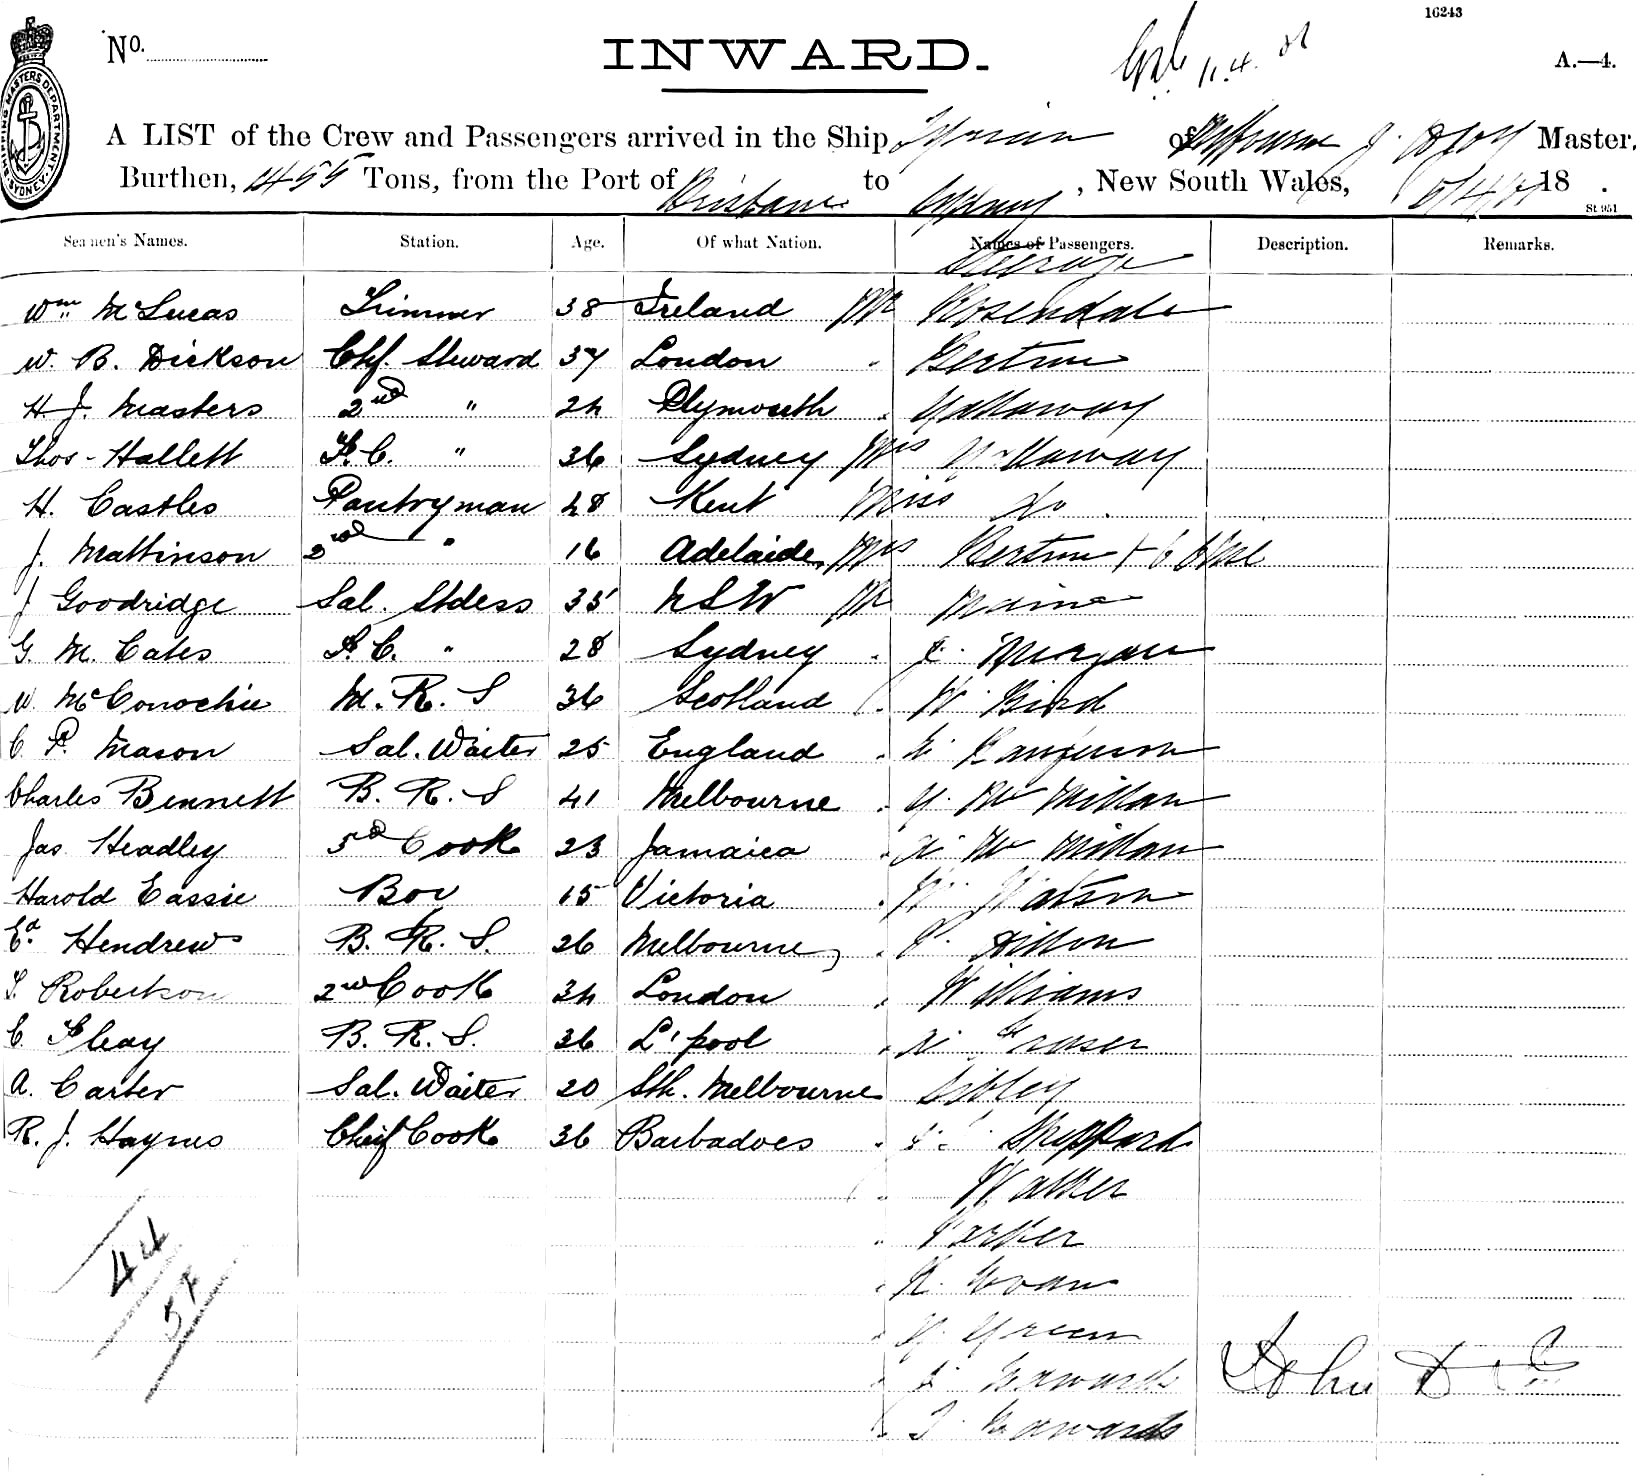 16243
No.
INWARD.
A.—4.
SHIPPING MASTERS DEPARTMENT SYDNEY
A LIST of the Crew and Passengers arrived in the Ship Tyrian of Melbourne J. Master,
Burthen, 1455 Tons, from the Port of Brisbane to Sydney, New South Wales, 18 .
St 951
Seamen's Names. Station. Age. Of what Nation. Names of Passengers. Description. Remarks.
Steerage
Wm McLucas Trimmer 38 Ireland Mr Rosendale
W. B. Dickson Chf. Steward 37 London "
H. J. Masters 2nd " 24 Plymouth "
Thos. Hallett F. C. " 36 Sydney Mrs
H. Castles Pantryman 28 Kent Miss Do
J. Mattinson 2nd " 16 Adelaide Mrs
J Goodridge Sal. Stdess 35 NSW Mr
G. M. Cates F. C. " 28 Sydney " Morgan
W. McConochie M. R. S 36 Scotland " W. Bird
C. P. Mason Sal. Waiter 25 England "
Charles Bennett B. R. S 41 Melbourne " Mc Millan
Jas Headley 3rd Cook 23 Jamaica " Mc Millan
Harold Eassie Boy 15 Victoria " W. Watson
Ed. Hendrews B. R. S. 26 Melbourne "
T. Robertson 2nd Cook 34 London " Williams
C. Fleay B. R. S. 36 L'pool " Fraser
A. Carter Sal. Waiter 20 Sth. Melbourne Sibley
R. J. Haynes Cheif Cook 36 Barbadoes " Sheppard
" Walker
" Parker
"
" Green
" Edwards John
" T. Edwards
44
54